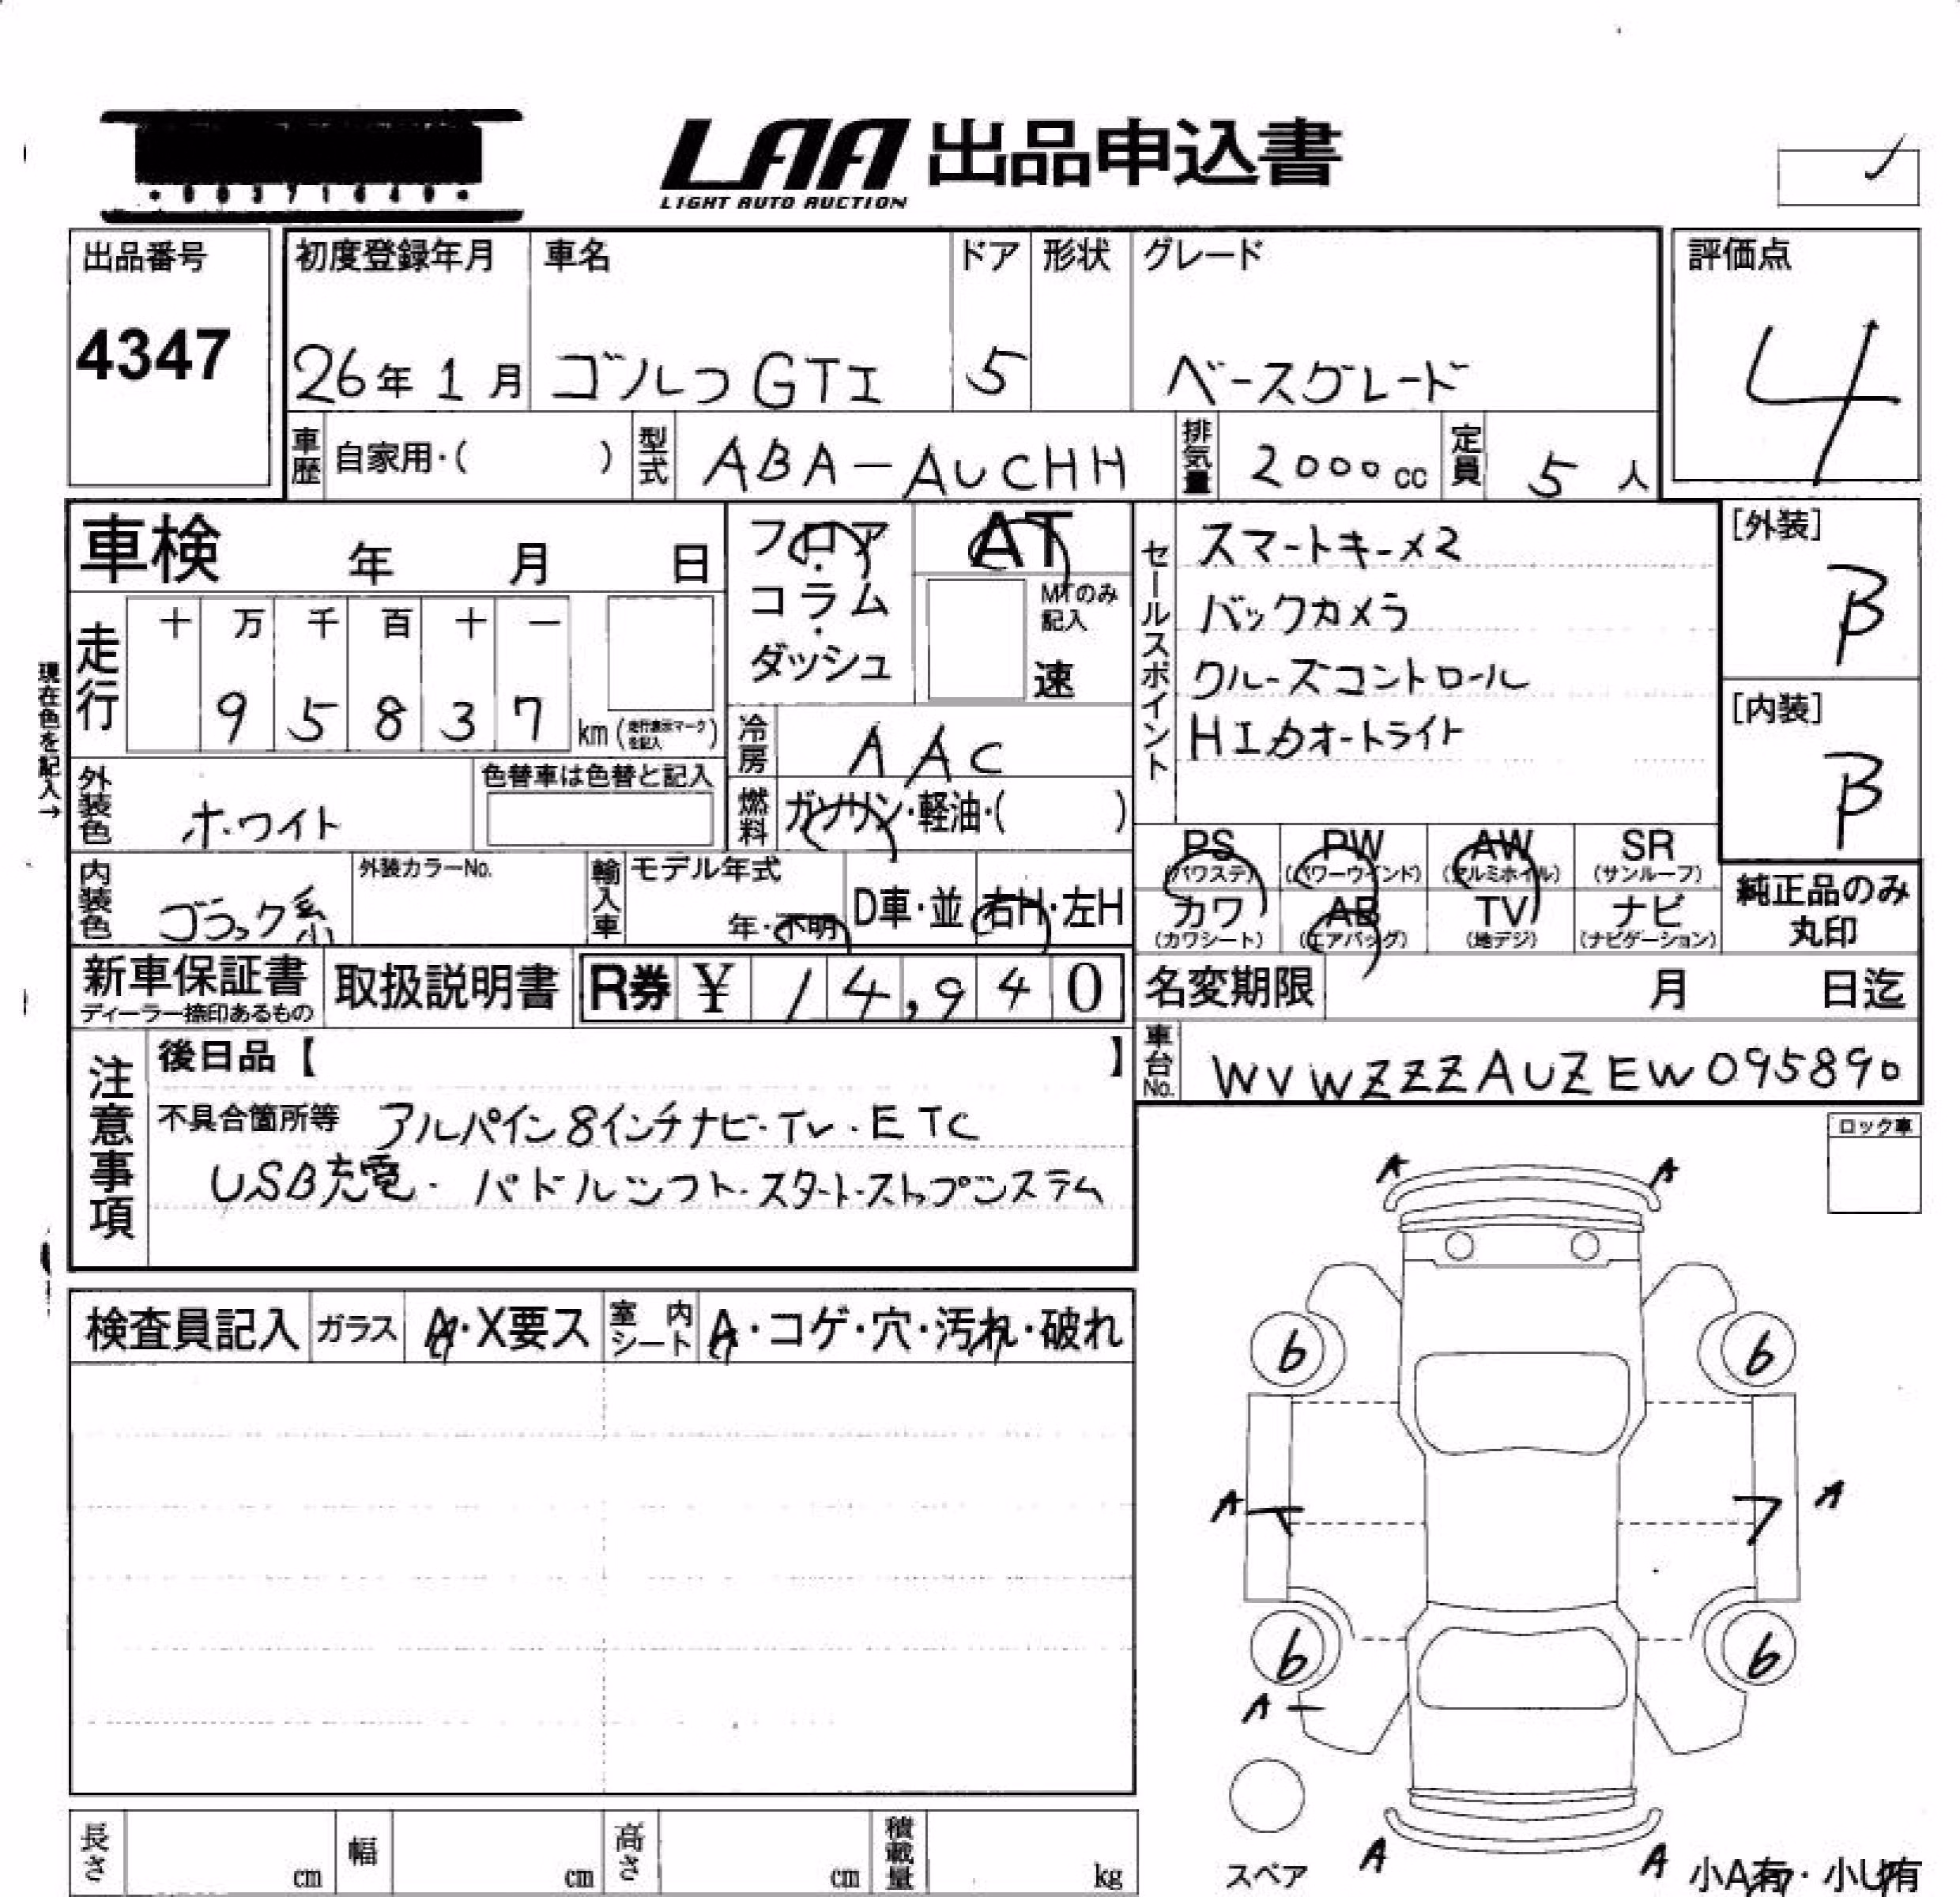 ・00371640・
LAA 出品申込書
LIGHT AUTO AUCTION
出品番号
4347
初度登録年月
26年 1月
車名
ゴルフ GTI
ドア
5
形状
グレード
ベースグレード
評価点
4
車歴 自家用・( )
型式 ABA-AUCHH
排気量 2000cc
定員 5人
車検 年 月 日
フロア・コラム・ダッシュ
AT
MTのみ記入
速
セールスポイント
スマートキー×2
バックカメラ
クルーズコントロール
HIDオートライト
[外装]
B
[内装]
B
現在色を記入→
走行
十 万 千 百 十 一
9 5 8 3 7 km (走行表示マークを記入)
冷房 AAC
外装色 ホワイト
色替車は色替と記入
燃料 ガソリン・軽油・( )
内装色 ブラック系
外装カラーNo.
輸入車 モデル年式
年・不明
D車・並
右H・左H
PS (パワステ)
PW (パワーウインド)
AW (アルミホイル)
SR (サンルーフ)
カワ (カワシート)
AB (エアバッグ)
TV (地デジ)
ナビ (ナビゲーション)
純正品のみ丸印
新車保証書
ディーラー捺印あるもの
取扱説明書
R券 ¥ 14,940
名変期限 月 日迄
車台No. WVWZZZAUZEW095890
注意事項
後日品【 】
不具合箇所等 アルパイン8インチナビ・TV・ETC
USB充電・パドルシフト・スタートストップシステム
ロック車
検査員記入
ガラス A・X要ス
室内シート A・コゲ・穴・汚れ・破れ
A A
6 6
A A
6 6
A
スペア
A A
小A有・小U有
長さ cm
幅 cm
高さ cm
積載量 kg